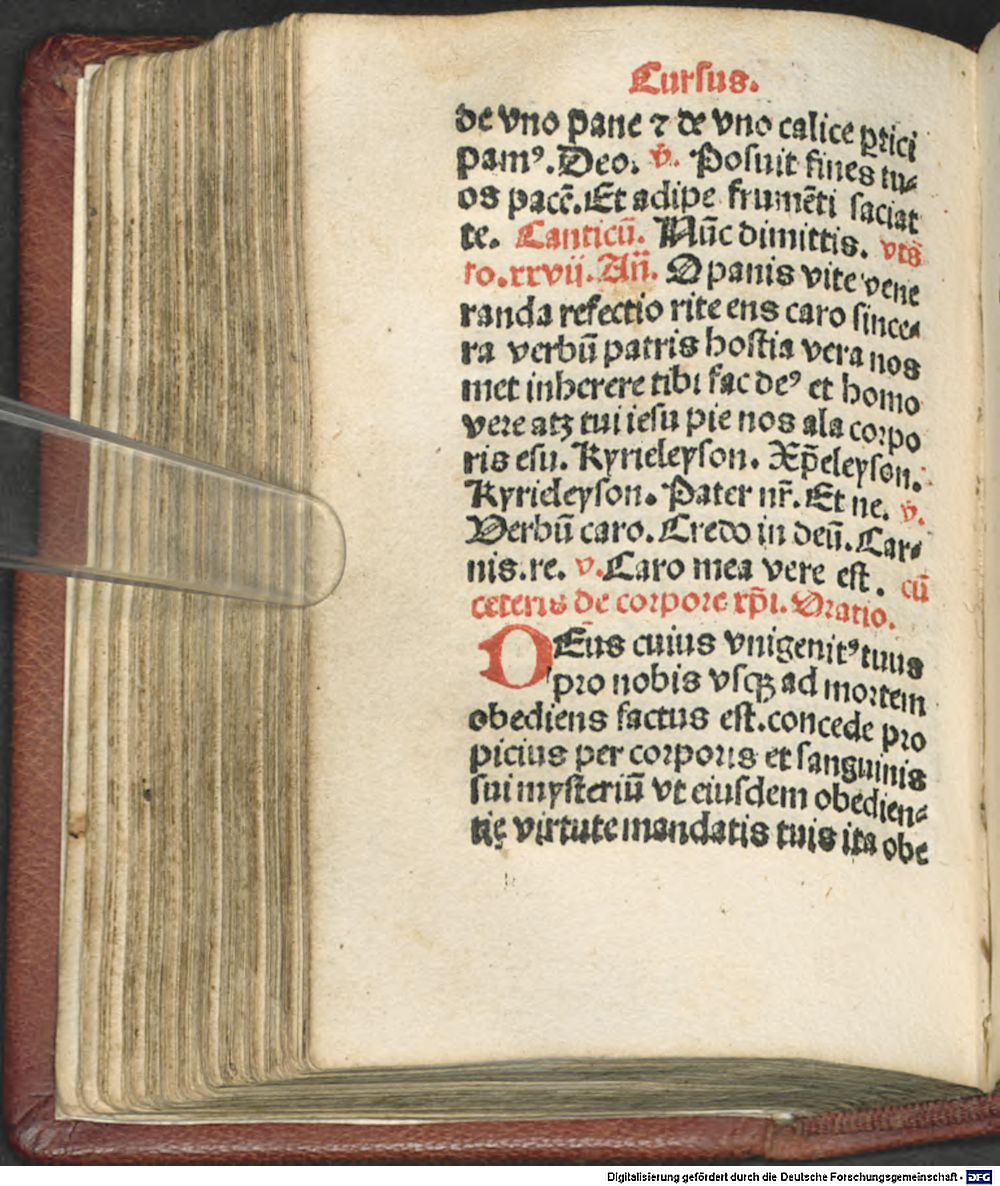 Cursus.
de vno pane ⁊ de vno calice ꝑtici
pamꝰ. Deo. v̄. Posuit fines tu⸗
os pacē. Et adipe frumēti saciat
te. Canticū. Nūc dimittis. vts
fo. xxvij. Añ. O panis vite vene
randa refectio rite ens caro since⸗
ra verbū patris hostia vera nos
met inherere tibi fac deꝰ et homo
vere atqꝫ tui iesu pie nos ala corpo
ris esu. Kyrieleyson. Xp̄eleyson.
Kyrieleyson. Pater nr̄. Et ne. v̄.
Verbū caro. Credo in deū. Car⸗
nis. re. v. Caro mea vere est. cū
ceteris de corpore xp̄i. Oratio.
DEus cuius vnigenitꝰ tuus
pro nobis vsqꝫ ad mortem
obediens factus est. concede pro
picius per corporis et sanguinis
sui mysteriū vt eiusdem obedien⸗
tię virtute mandatis tuis ita obe
Digitalisierung gefördert durch die Deutsche Forschungsgemeinschaft - DFG